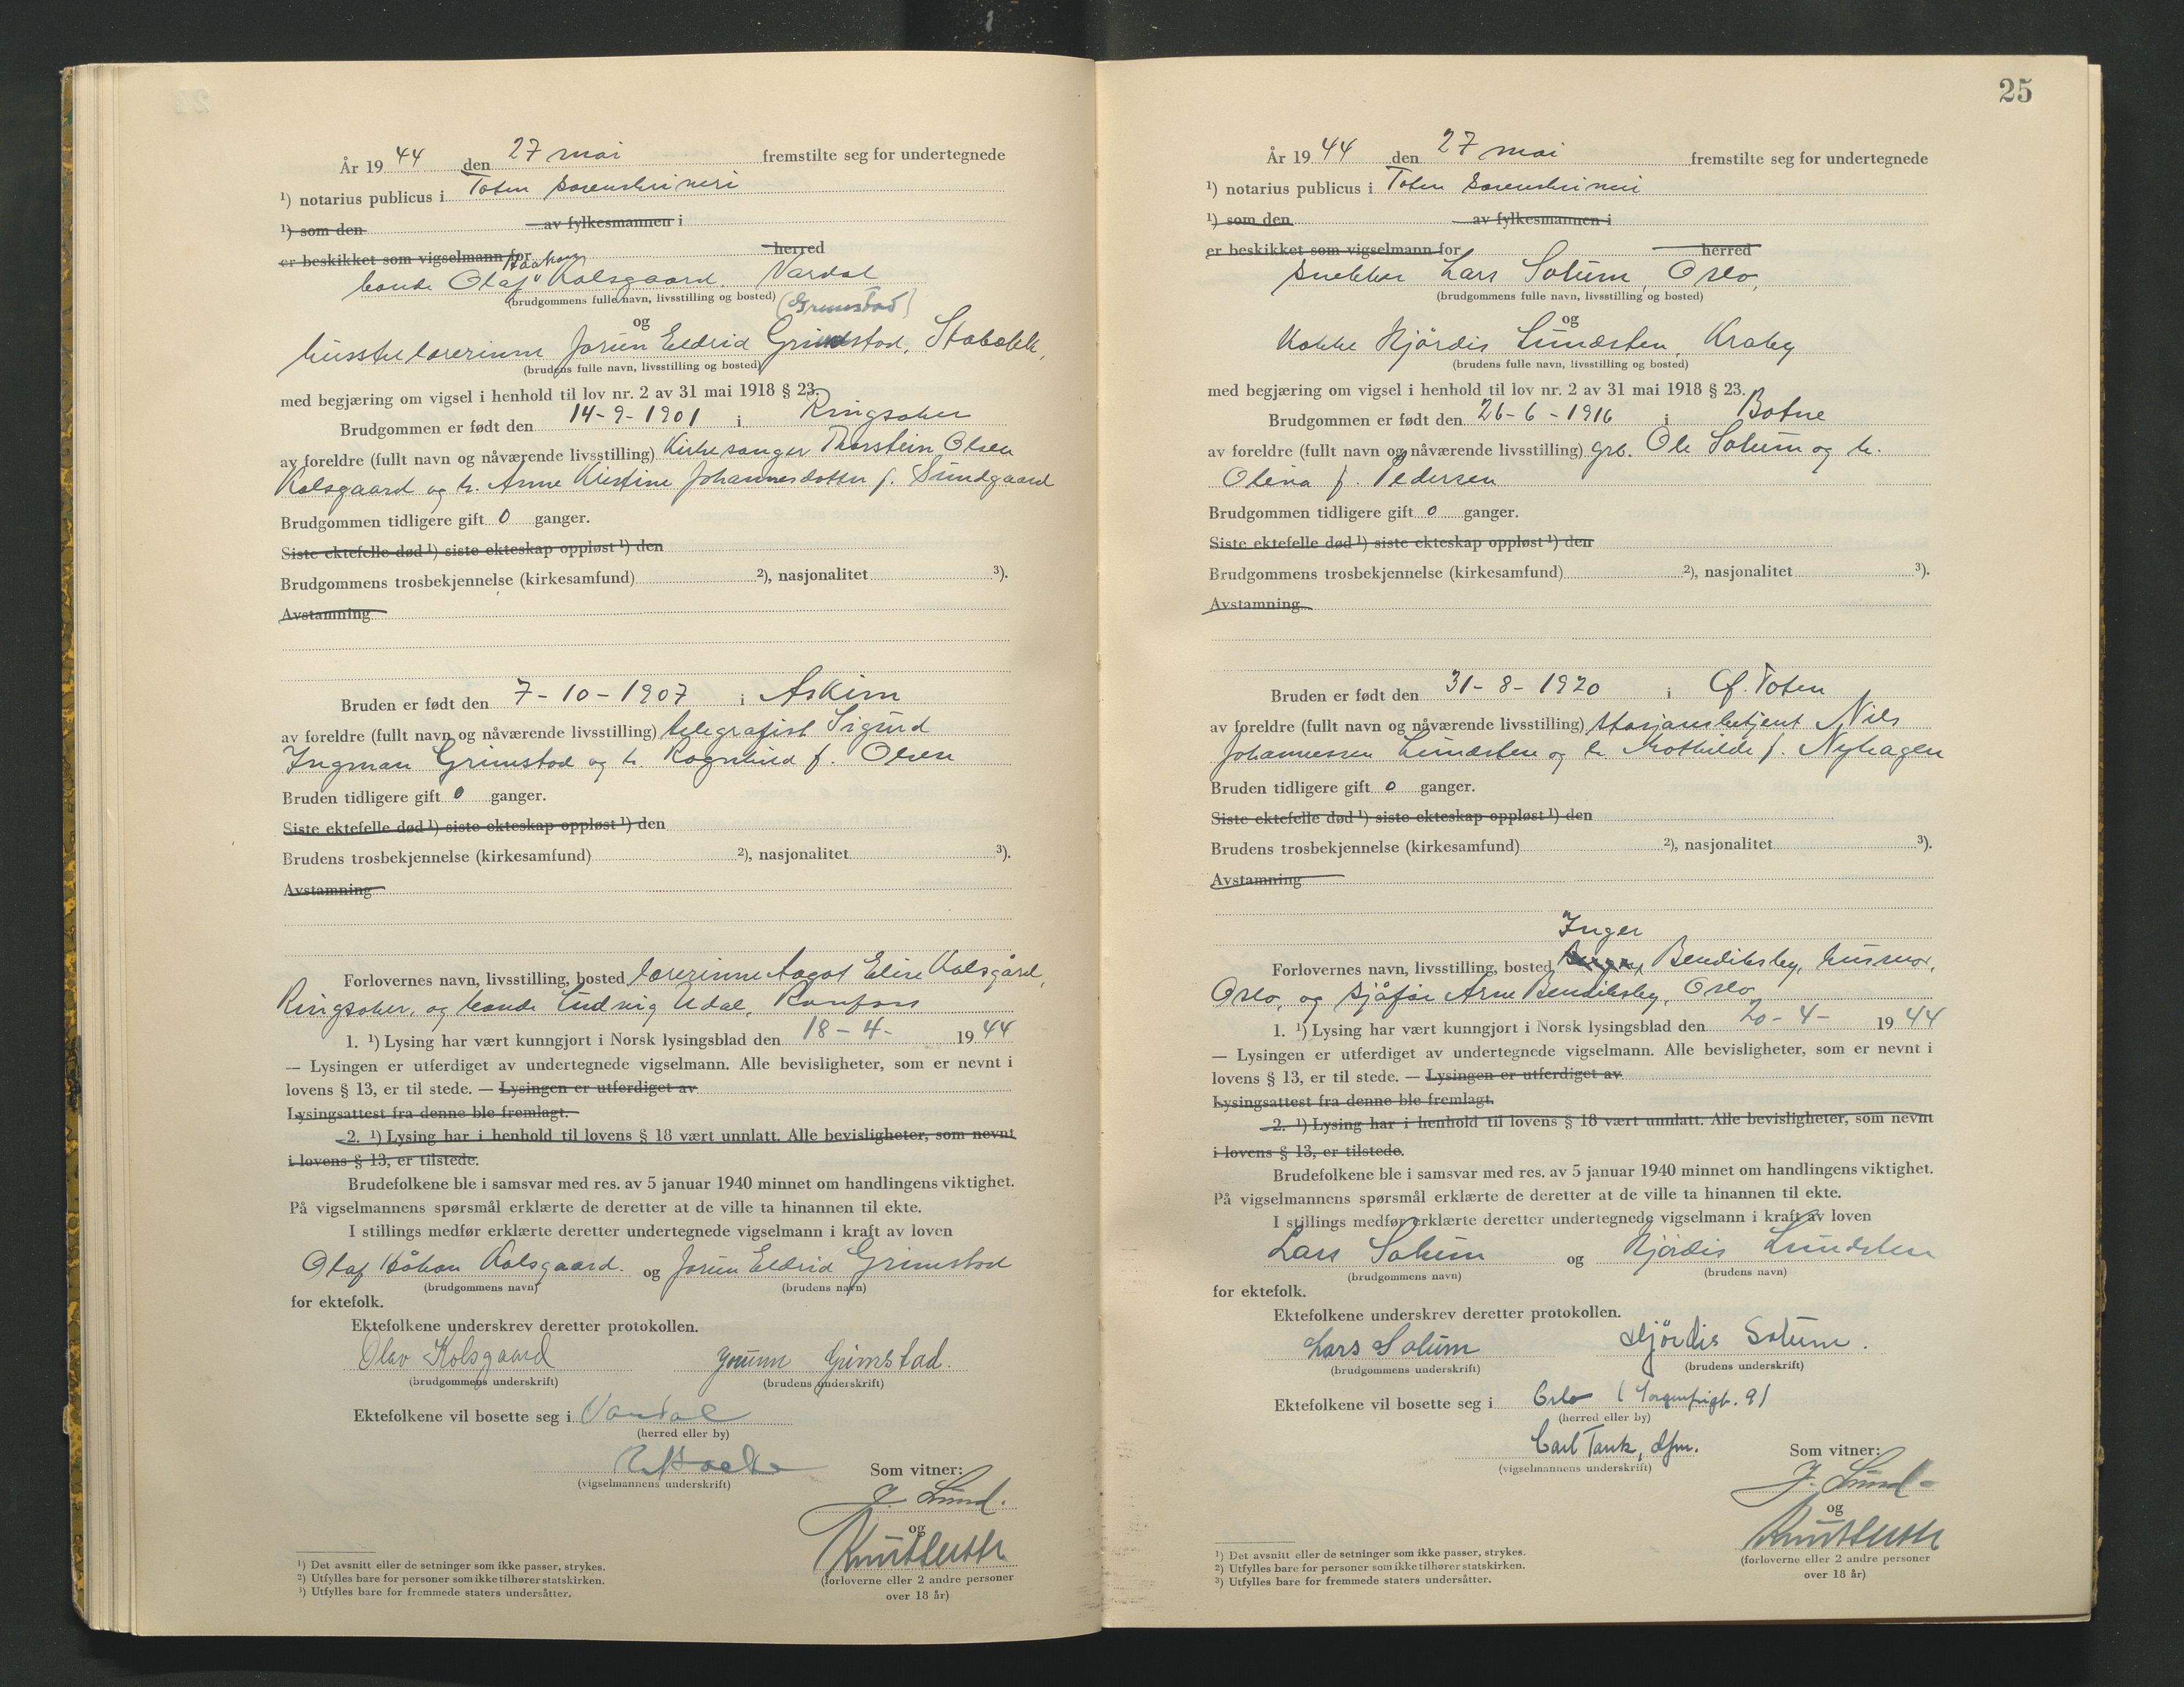 År 1944 den 27 mai fremstilte seg for undertegnede
¹) notarius publicus i Toten sorenskriveri
¹) som den av fylkesmannen i
er beskikket som vigselmann for herred
bonde Olaf Haakon Kolsgaard. Vardal
(brudgommens fulle navn, livsstilling og bosted) (Grimstad)
og
husstellærerinne Jorun Eldrid Grimstad, Stabekk,
(brudens fulle navn, livsstilling og bosted)
med begjæring om vigsel i henhold til lov nr. 2 av 31 mai 1918 § 23.
Brudgommen er født den 14-9-1901 i Ringsaker
av foreldre (fullt navn og nåværende livsstilling) Kirkesanger Thorstein Olsen
Kolsgaard og h. Anne Kristine Johannesdotter f. Sundgaard
Brudgommen tidligere gift 0 ganger.
Siste ektefelle død ¹) siste ekteskap oppløst ¹) den
Brudgommens trosbekjennelse (kirkesamfund) ²), nasjonalitet ³).
Avstamning
Bruden er født den 7-10-1907 i Askim
av foreldre (fullt navn og nåværende livsstilling) telegrafist Sigurd
Ingman Grimstad og h. Ragnhild f. Olsen
Bruden tidligere gift 0 ganger.
Siste ektefelle død ¹) siste ekteskap oppløst ¹) den
Brudens trosbekjennelse (kirkesamfund) ²), nasjonalitet ³).
Avstamning
Forlovernes navn, livsstilling, bosted lærerinne Aagot Elise Kolsgård,
Ringsaker, og bonde Ludvig Udal, Raufoss
1. ¹) Lysing har vært kunngjort i Norsk lysingsblad den 18-4- 1944
— Lysingen er utferdiget av undertegnede vigselmann. Alle bevisligheter, som er nevnt i
lovens § 13, er til stede. — Lysingen er utferdiget av
Lysingsattest fra denne ble fremlagt.
2. ¹) Lysing har i henhold til lovens § 18 vært unnlatt. Alle bevisligheter, som nevnt
i lovens § 13, er tilstede.
Brudefolkene ble i samsvar med res. av 5 januar 1940 minnet om handlingens viktighet.
På vigselmannens spørsmål erklærte de deretter at de ville ta hinannen til ekte.
I stillings medfør erklærte deretter undertegnede vigselmann i kraft av loven
Olaf Håkon Kolsgaard. og Jorun Eldrid Grimstad
(brudgommens navn) (brudens navn)
for ektefolk.
Ektefolkene underskrev deretter protokollen.
Olav Kolsgaard Jorunn Grimstad.
(brudgommens underskrift) (brudens underskrift)
Ektefolkene vil bosette seg i Vardal
(herred eller by)
(vigselmannens underskrift)
Som vitner:
J. Lund.
og
(forloverne eller 2 andre personer
over 18 år)
¹) Det avsnitt eller de setninger som ikke passer, strykes.
²) Utfylles bare for personer som ikke tilhører statskirken.
³) Utfylles bare for fremmede staters undersåtter.
25
År 1944 den 27 mai fremstilte seg for undertegnede
¹) notarius publicus i Toten sorenskriveri
¹) som den av fylkesmannen i
er beskikket som vigselmann for herred
snekker Lars Solum, Oslo,
(brudgommens fulle navn, livsstilling og bosted)
og
Kokke Hjördis Lundsten, Kraby
(brudens fulle navn, livsstilling og bosted)
med begjæring om vigsel i henhold til lov nr. 2 av 31 mai 1918 § 23.
Brudgommen er født den 26-6-1916 i Botne
av foreldre (fullt navn og nåværende livsstilling) grb. Ole Solum og h.
Olena f. Pedersen
Brudgommen tidligere gift 0 ganger.
Siste ektefelle død ¹) siste ekteskap oppløst ¹) den
Brudgommens trosbekjennelse (kirkesamfund) ²), nasjonalitet ³).
Avstamning
Bruden er født den 31-8-1920 i Ø. Toten
av foreldre (fullt navn og nåværende livsstilling) stasjonsbetjent Nils
Johannessen Lundsten og h. Mathilde f. Nyhagen
Bruden tidligere gift 0 ganger.
Siste ektefelle død ¹) siste ekteskap oppløst ¹) den
Brudens trosbekjennelse (kirkesamfund) ²), nasjonalitet ³).
Avstamning
Inger
Forlovernes navn, livsstilling, bosted Bendiksby, husmor,
Oslo, og sjåfør Arne Bendiksby, Oslo
1. ¹) Lysing har vært kunngjort i Norsk lysingsblad den 20-4- 1944
— Lysingen er utferdiget av undertegnede vigselmann. Alle bevisligheter, som er nevnt i
lovens § 13, er til stede. — Lysingen er utferdiget av
Lysingsattest fra denne ble fremlagt.
2. ¹) Lysing har i henhold til lovens § 18 vært unnlatt. Alle bevisligheter, som nevnt
i lovens § 13, er tilstede.
Brudefolkene ble i samsvar med res. av 5 januar 1940 minnet om handlingens viktighet.
På vigselmannens spørsmål erklærte de deretter at de ville ta hinannen til ekte.
I stillings medfør erklærte deretter undertegnede vigselmann i kraft av loven
Lars Solum og Hjördis Lundsten
(brudgommens navn) (brudens navn)
for ektefolk.
Ektefolkene underskrev deretter protokollen.
Lars Solum Hjördis Solum.
(brudgommens underskrift) (brudens underskrift)
Ektefolkene vil bosette seg i Oslo (Sorgenfrigt. 9)
(herred eller by)
Carl Tank, dfm.
(vigselmannens underskrift)
Som vitner:
J. Lund
og
(forloverne eller 2 andre personer
over 18 år)
¹) Det avsnitt eller de setninger som ikke passer, strykes.
²) Utfylles bare for personer som ikke tilhører statskirken.
³) Utfylles bare for fremmede staters undersåtter.